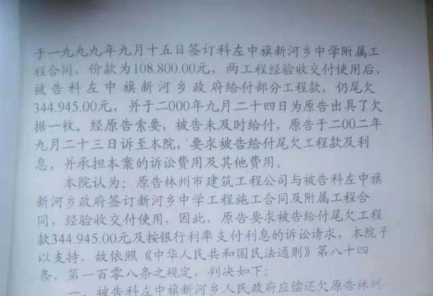 于一九九九年九月十五日签订科左中旗新河乡中学附属工
程合同，价款为108.800.00元，两工程经验收交付使用后，
被告科左中旗新河乡政府给付部分工程款，仍尾欠
344.945.00元，并于二000年九月二十四日为原告出具了欠
据一枚。经原告索要，被告未及时给付，原告于二00二年
九月二十三日诉至本院，要求被告给付尾欠工程款及利
息，并承担本案的诉讼费用及其他费用。
本院认为：原告林州市建筑工程公司与被告科左中旗
新河乡政府签订新河乡中学工程施工合同及附属工程合
同，经验收交付使用，因此，原告要求被告给付尾欠工程
款344.945.00元及按银行利率支付利息的诉讼请求，本院予
以支持，故依照《中华人民共和国民法通则》第八十四
条、第一百零八条之规定，判决如下：
一、被告科左中旗新河乡人民政府应偿还欠原告林州